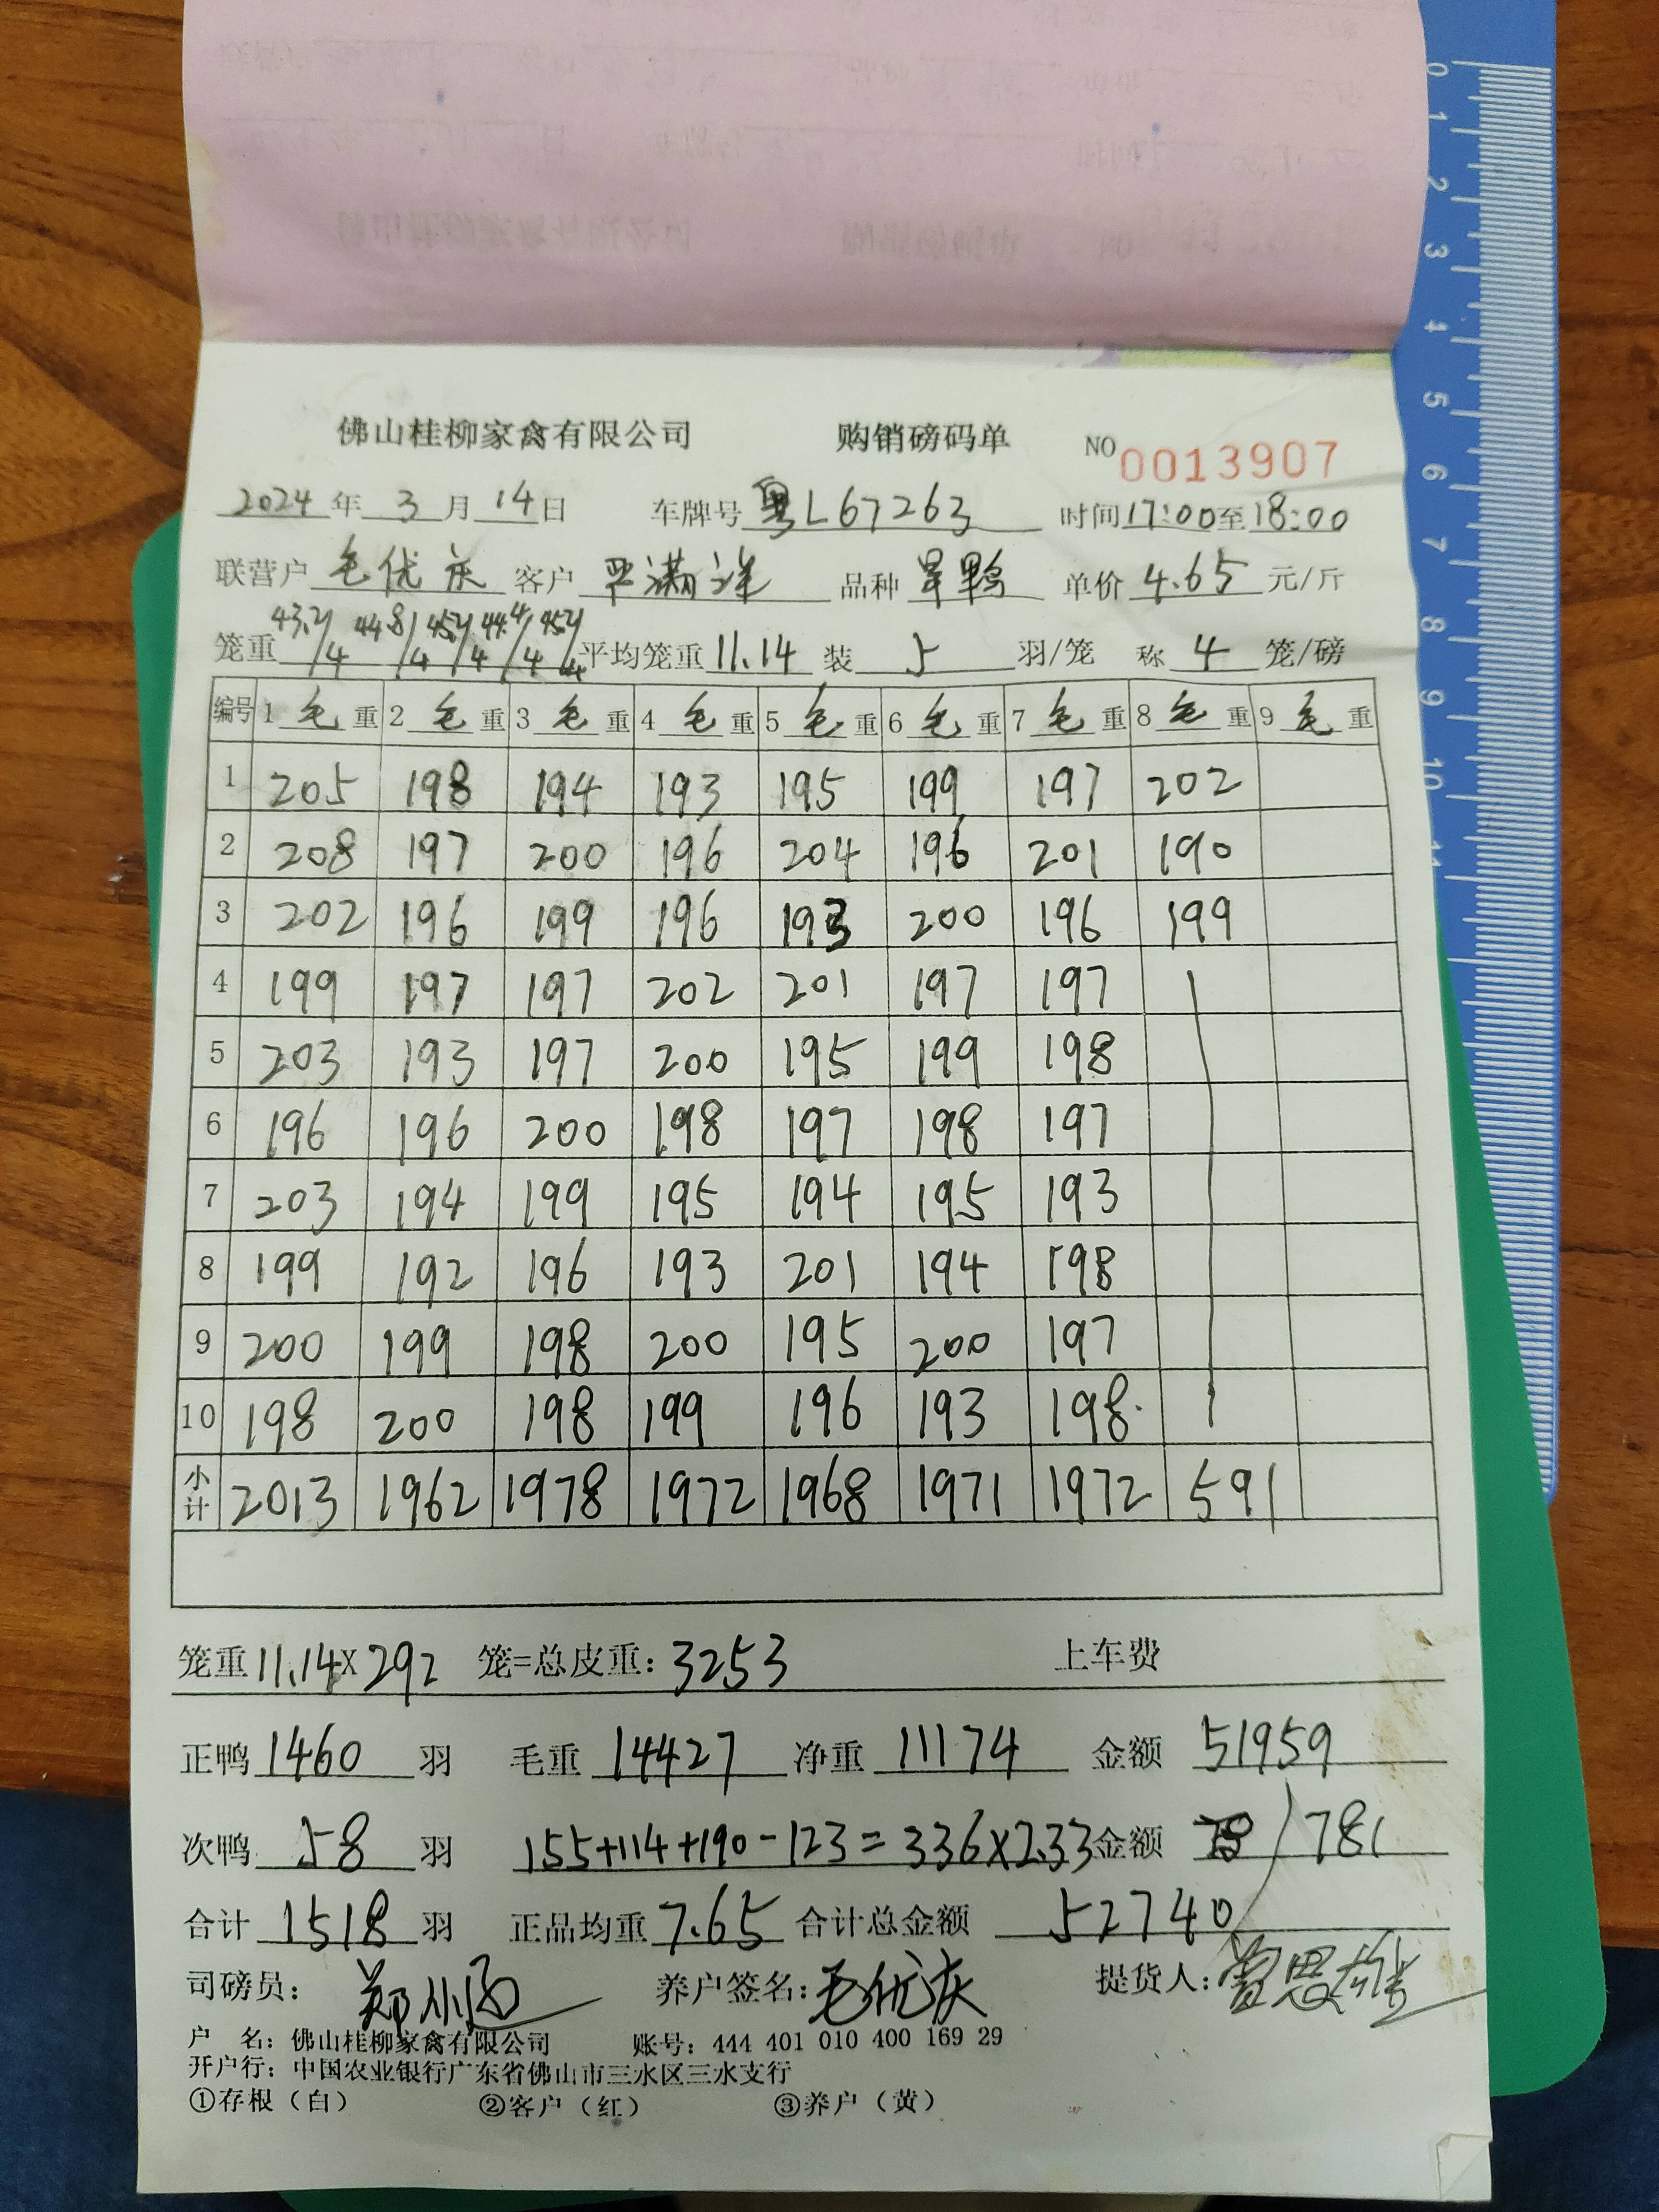 佛山桂柳家禽有限公司 购销磅码单 NO 0013907
2024 年 3 月 14 日 车牌号 粤L67263 时间 17:00 至 18:00
联营户 毛优庆 客户 严满洪 品种 旱鸭 单价 4.65 元/斤
笼重 43.2/4 44.8/4 45.2/4 44.4/4 45.2/4 平均笼重 11.14 装 5 羽/笼 称 4 笼/磅
编号 1 毛 重 2 毛 重 3 毛 重 4 毛 重 5 毛 重 6 毛 重 7 毛 重 8 毛 重 9 毛 重
1 205 198 194 193 195 199 197 202
2 208 197 200 196 204 196 201 190
3 202 196 199 196 193 200 196 199
4 199 197 197 202 201 197 197
5 203 193 197 200 195 199 198
6 196 196 200 198 197 198 197
7 203 194 199 195 194 195 193
8 199 192 196 193 201 194 198
9 200 199 198 200 195 200 197
10 198 200 198 199 196 193 198
小计 2013 1962 1978 1972 1968 1971 1972 591
笼重 11.14 X 292 笼=总皮重: 3253 上车费
正鸭 1460 羽 毛重 14427 净重 11174 金额 51959
次鸭 58 羽 155+114+190-123=336×2.33 金额 781
合计 1518 羽 正品均重 7.65 合计总金额 52740
司磅员: 养户签名: 毛优庆 提货人: 曾思雄
户 名: 佛山桂柳家禽有限公司 账号: 444 401 010 400 169 29
开户行: 中国农业银行广东省佛山市三水区三水支行
①存根（白） ②客户（红） ③养户（黄）
0
1
2
3
4
5
6
7
8
9
10
11